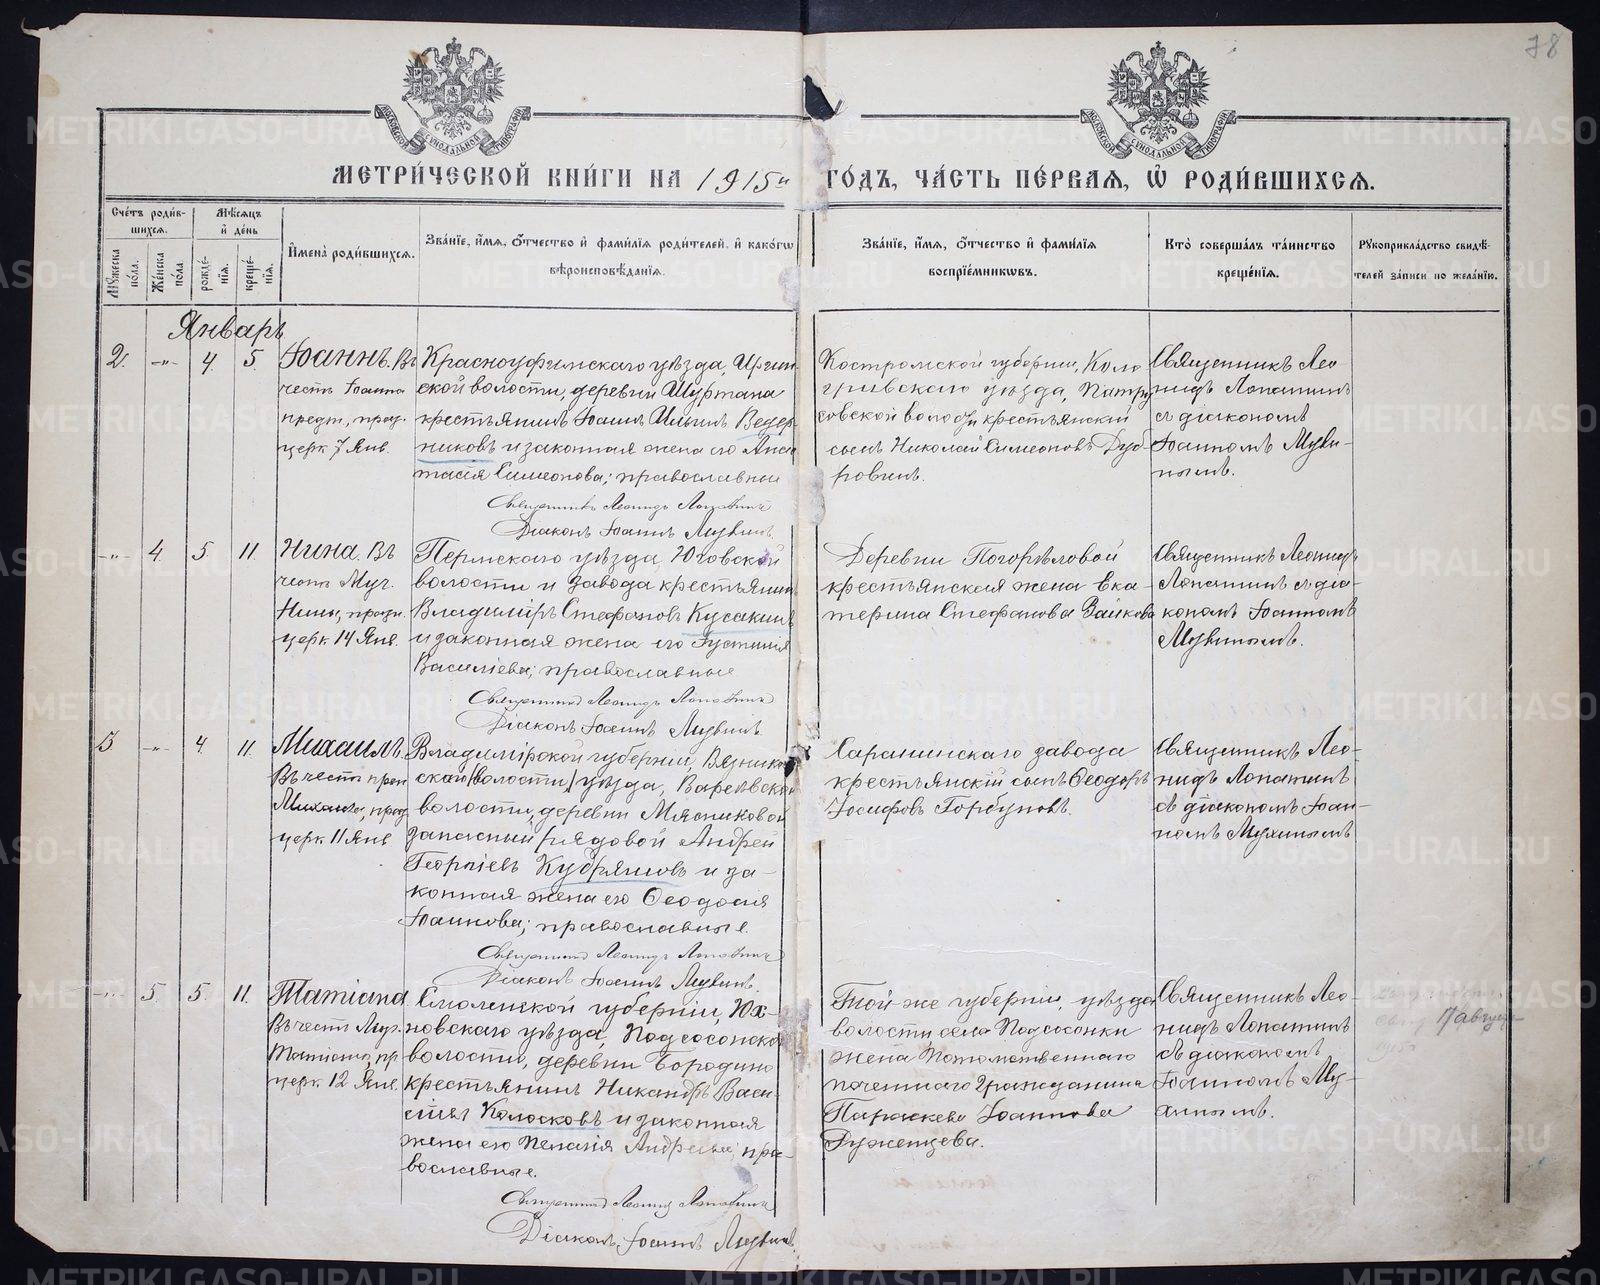 78
МОСКОВСКОЙ СѴНОДАЛЬНОЙ ТИПОГРАФІИ
МОСКОВСКОЙ СѴНОДАЛЬНОЙ ТИПОГРАФІИ
МЕТРИ́ЧЕСКОЙ КНИ́ГИ НА 1915й ГО́ДЪ, ЧА́СТЬ ПЕ́РВАЯ, Ѽ РОДИ́ВШИХСЯ.
Сче́тъ роди́в-
шихся.
Мѣ́сяцъ
и҆ де́нь
Мꙋ́жеска по́ла.
Же́нска по́ла.
рожде́-нїя.
креще́-нїя.
И҆мена̀ роди́вшихся.
Зва́нїе, и҆́мя, ѻ҆́тчество и҆ фами́лїя роди́телей, и҆ како́гѡ
вѣроисповѣ́данїя.
Зва́нїе, и҆́мя, ѻ҆́тчество и҆ фами́лїя
воспрїе́мникѡвъ.
Кто̀ соверша́лъ та́инство
креще́нїя.
Рꙋкоприкла́дство свидѣ́-
телей за́писи по жела́нїю.
Январь
2. -„- 4. 5.
Іоаннъ. Въ
честь Іоанна
предт., празд.
церк. 7 Янв.
Красноуфимскаго уѣзда, Иргин-
ской волости, деревни Шуртана
крестьянинъ Іоаннъ Ильинъ Ведер-
никовъ и законная жена его Анас-
тасія Симеонова; православные
Священникъ Леонидъ Лопатинъ
Діаконъ Іоаннъ Мухинъ.
Костромской губерніи, Коло
гривскаго уѣзда,
совской волости крестьянскій
сынъ Николай Симеоновъ Дуб-
ровинъ.
Священникъ Лео-
нидъ Лопатинъ
съ діакономъ
Іоанномъ Мухи-
нымъ.
-„- 4. 5. 11.
Нина. Въ
честь Муч.
Нины, празд.
церк. 14 Янв.
Пермскаго уѣзда, Юговской
волости и завода крестьянинъ
Владиміръ Стефановъ Кусакинъ
и законная жена его Іустинія
Василіева; православные
Священникъ Леонидъ Лопатинъ
Діаконъ Іоаннъ Мухинъ.
Деревни Погорѣловой
крестьянская жена Ека-
терина Стефанова Зайкова
Священникъ Леонидъ
Лопатинъ съ діа-
кономъ Іоанномъ
Мухинымъ.
3 -„- 4. 11.
Михаилъ.
Въ честь преп.
Михаила, празд.
церк. 11 Янв
Владимірской губерніи, Вязников-
ской (волости) уѣзда,
волости, деревни Мясниковой
запасный рядовой Андрей
Георгіевъ Кудряшовъ и за-
конная жена его Ѳеодосія
Іоаннова; православные.
Священникъ Леонидъ Лопатинъ
Діаконъ Іоаннъ Мухинъ.
Саранинскаго завода
крестьянскій сынъ Ѳеодоръ
Іосифовъ Горбуновъ.
Священникъ Лео-
нидъ Лопатинъ
съ діакономъ Іоан-
номъ Мухинымъ
-„- 5. 5. 11.
Татіана.
Въ честь Муч.
Татіаны, пр.
церк. 12 Янв.
Смоленской губерніи, Юх-
новскаго уѣзда, Подсосонской
волости, деревни Бородино
крестьянинъ Никандръ Васи-
ліевъ Колосковъ и законная
жена его Пелагія Андреева; пра-
вославные.
Священникъ Леонидъ Лопатинъ
Діаконъ Іоаннъ Мухинъ.
Той-же губерніи, уѣзда
волости, села Подсосонки
жена потомственнаго
почетнаго гражданина
Параскева Іоаннова
Руженцева.
Священникъ Лео-
нидъ Лопатинъ
съ діакономъ
Іоанномъ Му-
хинымъ.
17 августа
1915